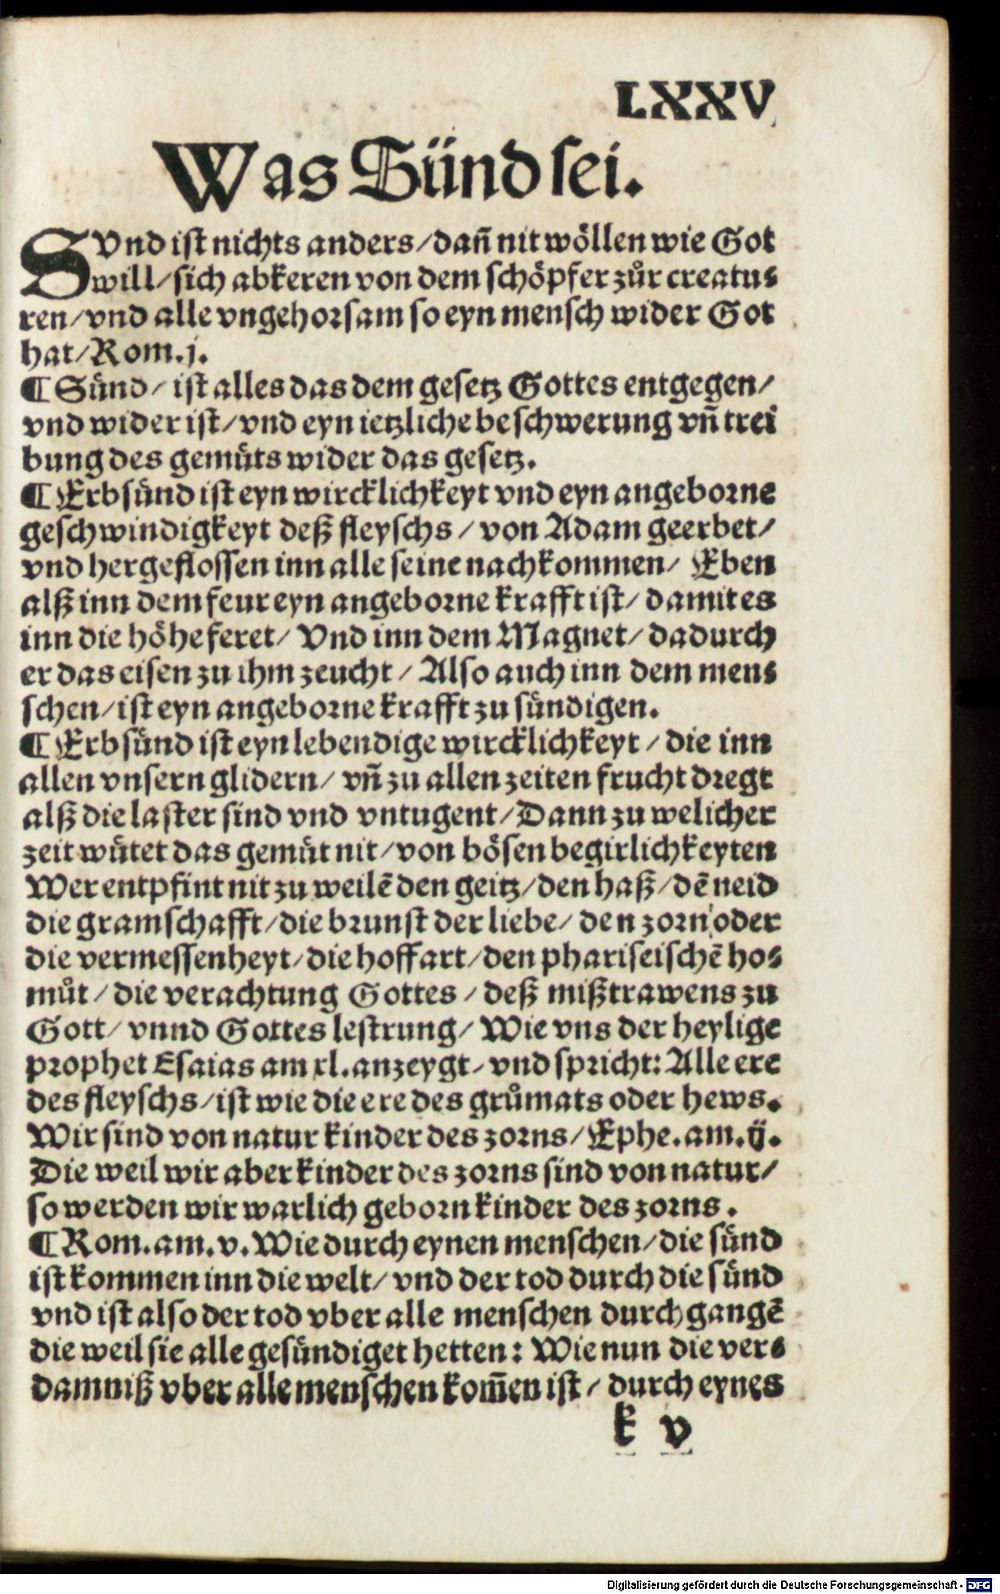 LXXV
Was Sünd sei.
SVnd ist nichts anders/dañ nit wöllen wie Got
will/sich abkeren von dem schöpfer zůr creatu⸗
ren/vnd alle vngehorsam so eyn mensch wider Got
hat/Rom.j.
¶ Sünd/ ist alles das dem gesetz Gottes entgegen/
vnd wider ist/vnd eyn ietzliche beschwerung vñ trei
bung des gemüts wider das gesetz.
¶ Erbsünd ist eyn wircklichkeyt vnd eyn angeborne
geschwindigkeyt deß fleyschs/von Adam geerbet/
vnd hergeflossen inn alle seine nachkommen/ Eben
alß inn dem feur eyn angeborne krafft ist/ damit es
inn die höhe feret/ Vnd inn dem Magnet/ dadurch
er das eisen zu ihm zeucht/ Also auch inn dem men⸗
schen/ist eyn angeborne krafft zu sündigen.
¶ Erbsünd ist eyn lebendige wircklichkeyt/die inn
allen vnsern glidern/ vñ zu allen zeiten frucht dregt
alß die laster sind vnd vntugent/Dann zu welicher
zeit wütet das gemüt nit/von bösen begirlichkeyten
Wer entpfint nit zu weilē den geitz/den haß/dē neid
die gramschafft/die brunst der liebe/ den zorn oder
die vermessenheyt/die hoffart/den phariseischē ho⸗
můt/die verachtung Gottes/deß mißtrawens zu
Gott/ vnnd Gottes lestrung/ Wie vns der heylige
prophet Esaias am xl.anzeygt/vnd spricht: Alle ere
des fleyschs/ist wie die ere des grůmats oder hews.
Wir sind von natur kinder des zorns/Ephe.am.ij.
Die weil wir aber kinder des zorns sind von natur/
so werden wir warlich geborn kinder des zorns.
¶ Rom.am.v.Wie durch eynen menschen/die sünd
ist kommen inn die welt/ vnd der tod durch die sünd
vnd ist also der tod vber alle menschen durch gangē
die weil sie alle gesündiget hetten: Wie nun die ver⸗
damniß vber alle menschen kom̄en ist/ durch eynes
k v
Digitalisierung gefördert durch die Deutsche Forschungsgemeinschaft - DFG